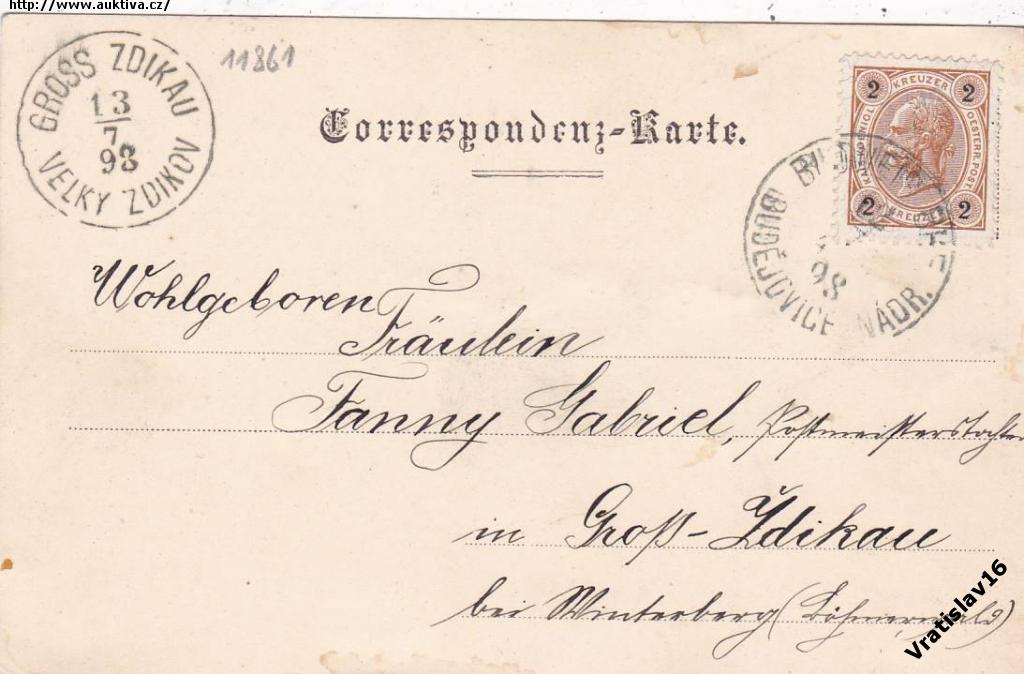 http://www.auktiva.cz/
11861
GROSS ZDIKAU
13
7
98
VELKY ZDIKOV
Correspondenz-Karte.
2 KREUZER 2
KAIS. KOENIGL. OESTERR. POST
2 KREUZER 2
98
BUDĚJOVICE NÁDR.
Wohlgeboren
Fräulein
Fanny Gabriel, Postmeisterstochter
in Groß-Zdikau
bei Winterberg (Böhmerwald)
Vratislav16